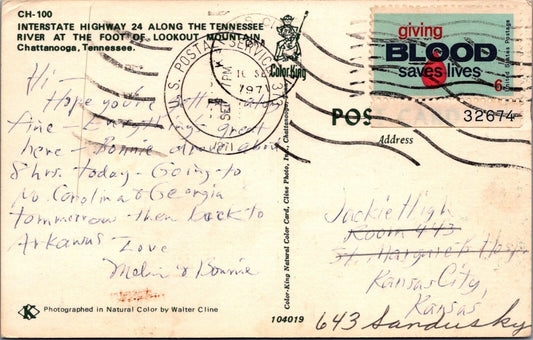 CH-100
INTERSTATE HIGHWAY 24 ALONG THE TENNESSEE
RIVER AT THE FOOT OF LOOKOUT MOUNTAIN,
Chattanooga, Tennessee.
Color King
U.S. POSTAL SERVICE
PM
SEP
1971
giving
BLOOD
saves lives
United States Postage
6
POST CARD
32674
Address
Hi -
Hope you're all
fine - Everything's great
here - Bonnie drove about
8 hrs. today - Going to
No. Carolina & Georgia
tommorrow - then back to
Arkansas -
Love
Melvin & Bonnie
Jackie High
Room 443
St. Margaret's Hosp.
Kansas City,
Kansas
643 Sandusky
Color-King Natural Color Card, Cline Photo, Inc., Chattanooga
K Photographed in Natural Color by Walter Cline
104019